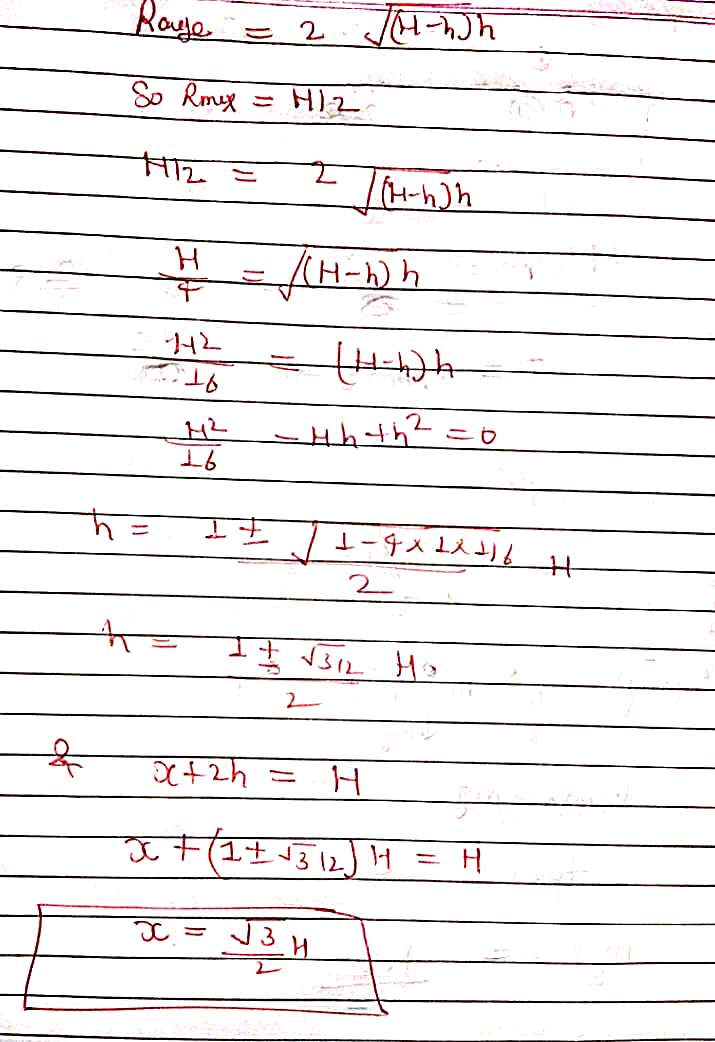 Range = 2 √(H-h)h
So Rmax = H/2
H/2 = 2 √(H-h)h
H/4 = √(H-h)h
H2/16 = (H-h)h
H²/16 - Hh + h² = 0
h = 1 ± √1-4×1×1/6 / 2 H
h = 1 ± √3/2 / 2 H
& x+2h = H
x + (1 ± √3/2) H = H
x = √3/2 H